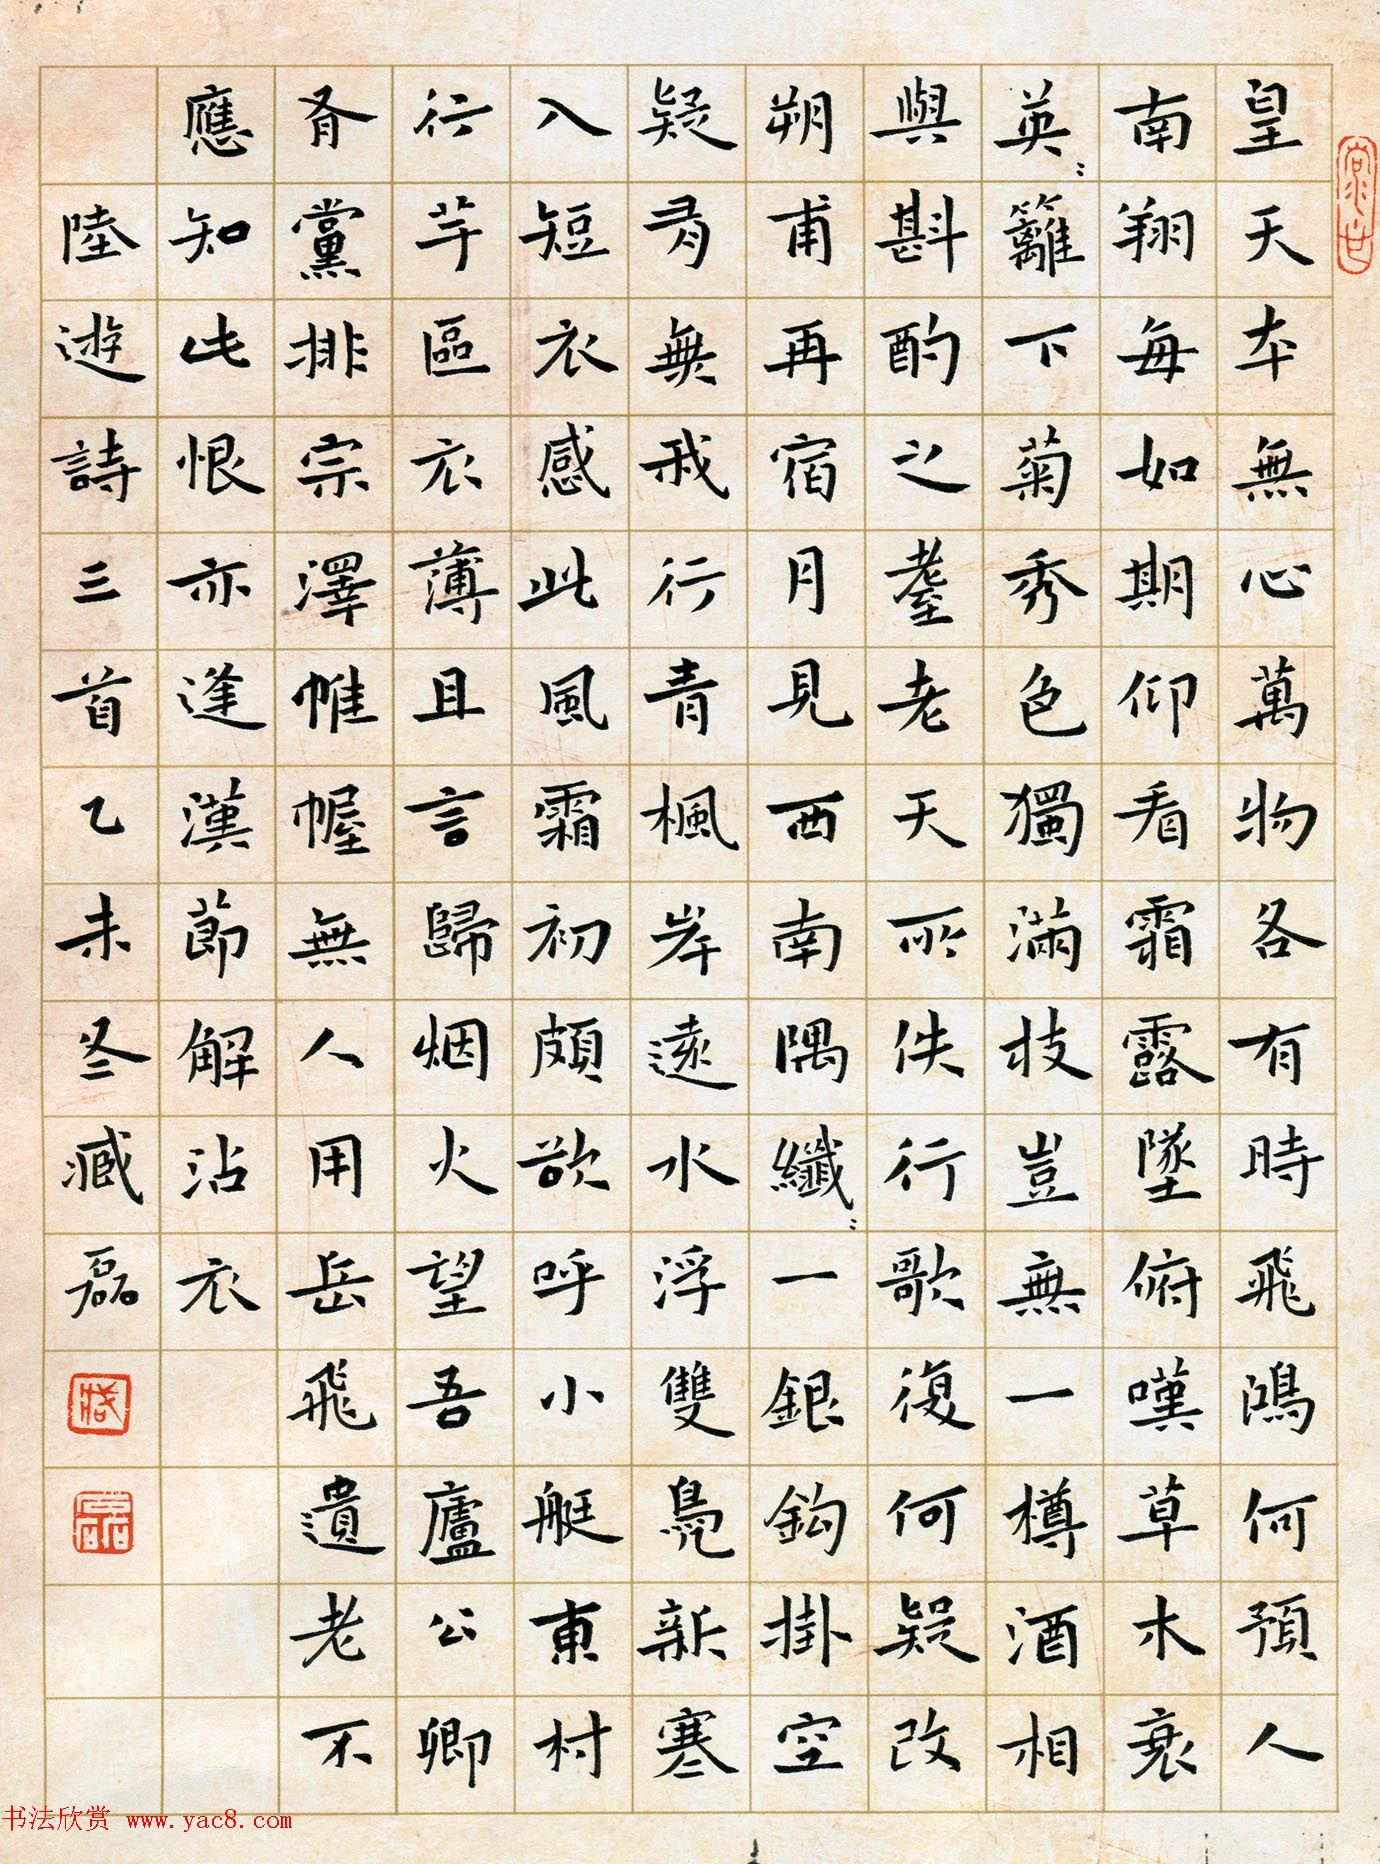 皇天本無心萬物各有時飛鴻何預人
南翔每如期仰看霜露墜俯嘆草木衰
英〻籬下菊秀色獨滿枝豈無一樽酒相
與斟酌之耋老天所佚行歌復何疑改
朔甫再宿月見西南隅纖〻一銀鈎掛空
疑有無我行青楓岸遠水浮雙鳧新寒
入短衣感此風霜初頗欲呼小艇東村
行芋區衣薄且言歸烟火望吾廬公卿
有黨排宗澤帷幄無人用岳飛遺老不
應知此恨亦逢漢節解沾衣
陸遊詩三首乙未冬臧磊
臧
磊
书法欣赏 www.yac8.com